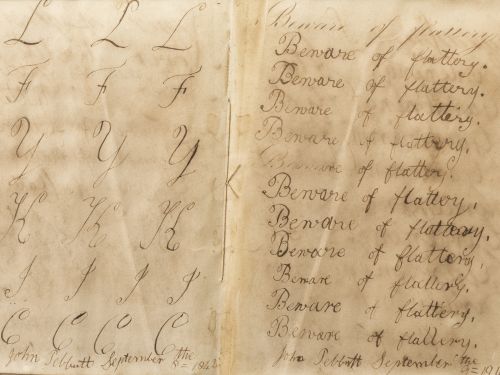 L L L
F F F
Y Y Y
K K K
I I I I
C C C C
John Tebbutt September the
Beware of flattery
Beware of flattery.
Beware of flattery.
Beware of flattery.
Beware of flattery.
Beware of flattery.
Beware of flattery,
Beware of flattery,
Beware of flattery,
Beware of flattery.
Beware of flattery,
Beware of flattery.
John Tebbutt September the